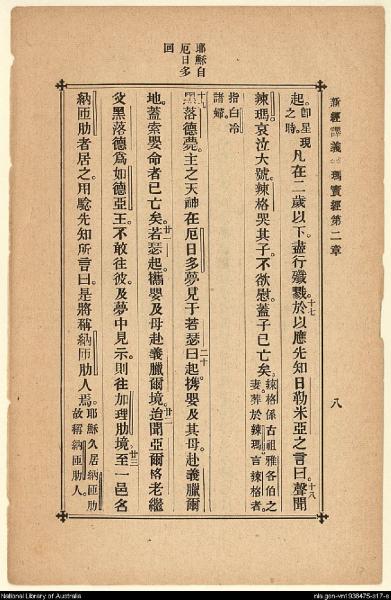 新經譯義 瑪竇經第二章
八
耶穌自
厄日多
回
起。卽星現之時。凡在二歲以下。盡行殲戮。十七於以應先知日勒米亞之言曰。十八聲聞
辣瑪哀泣大號。辣格哭其子。不欲慰。蓋子已亡矣。辣格係古祖雅各伯之妻。葬於辣瑪。言辣格者。
指白冷諸婦。
十九黑落德薨。主之天神在厄日多夢見于若瑟曰。二十起。携嬰及其母。赴義臘爾
地。蓋索嬰命者已亡矣。廿一若瑟起。攜嬰及母赴義臘爾境。廿二迨聞亞爾格老繼
父黑落德爲如德亞王。不敢往彼。及夢中見示。則往加理肋境。廿三至一邑名
納匝肋者居之。用驗先知所言曰。是將稱納匝肋人焉。耶穌久居納匝肋故稱納匝肋人。
National Library of Australia
nla.gen-vn1938475-s17-e